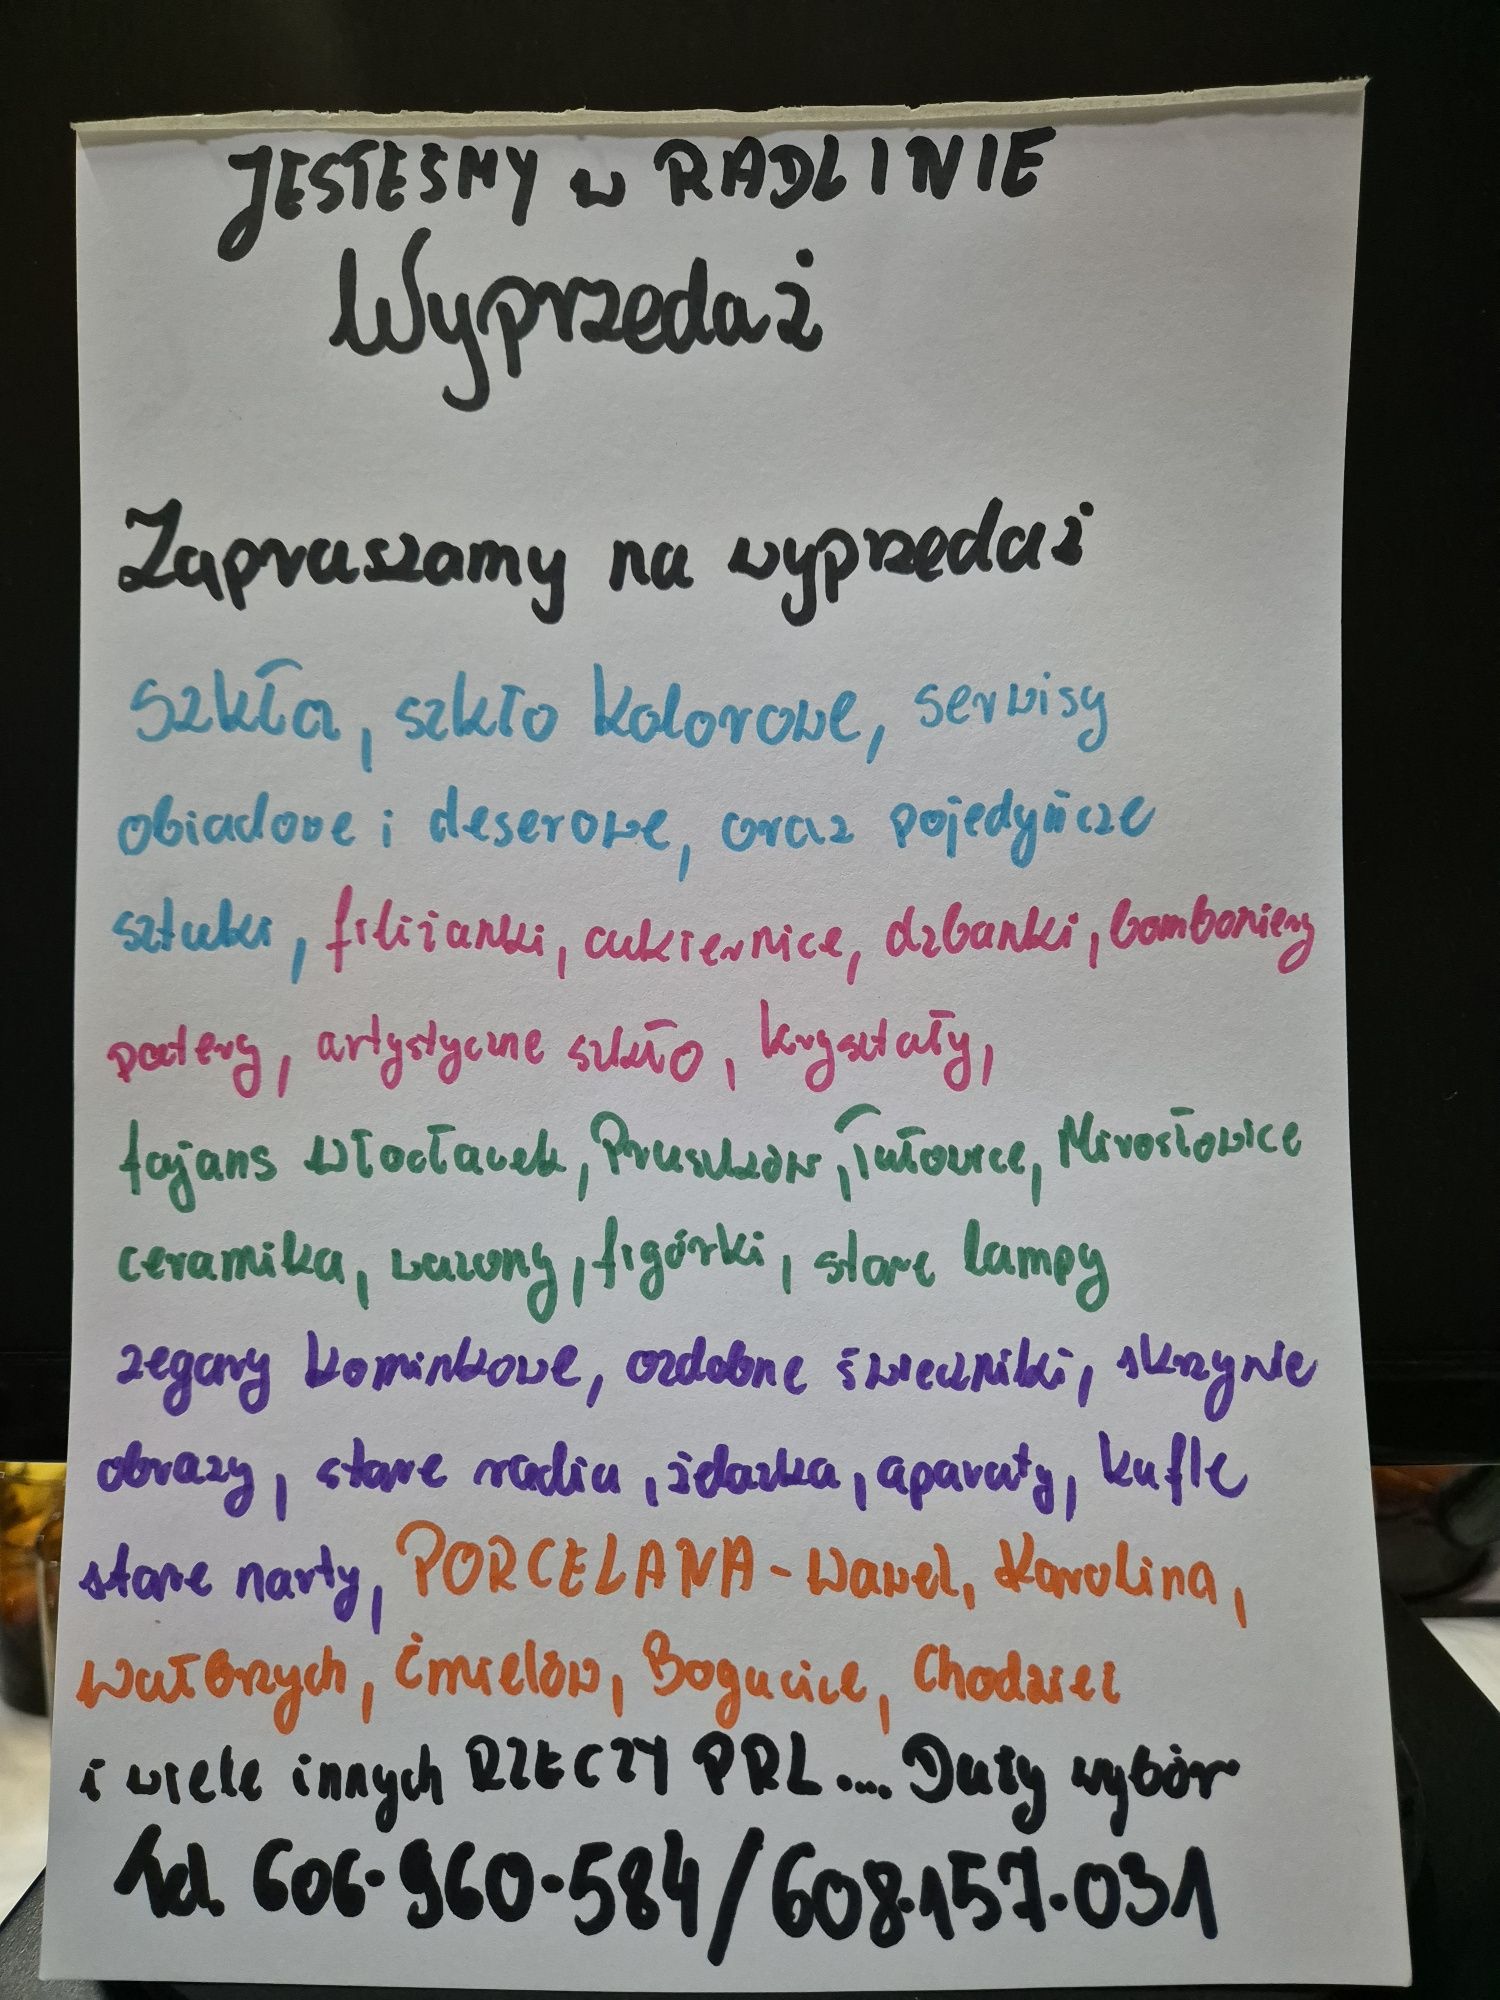 JESTEŚMY w RADLINIE
Wyprzedaż
Zapraszamy na wyprzedaż
Szkła, szkło kolorowe, serwisy
obiadowe i deserowe, oraz pojedyńcze
sztuki, filiżanki, cukiernice, dzbanki, bomboniery
patery, artystyczne szkło, kryształy,
fajans Włocławek, Pruszków, Tułowice, Mirosłowice
ceramika, wazony, figórki, stare lampy
zegary kominkowe, ozdobne świeczniki, skrzynie
obrazy, stare radia, żelazka, aparaty, kufle
stare narty, PORCELANA - Wawel, Karolina,
Wałbrzych, Ćmielów, Bogucice, Chodzież
i wiele innych RZECZY PRL.... Duży wybór
Tel. 606-960-584/608.157.031